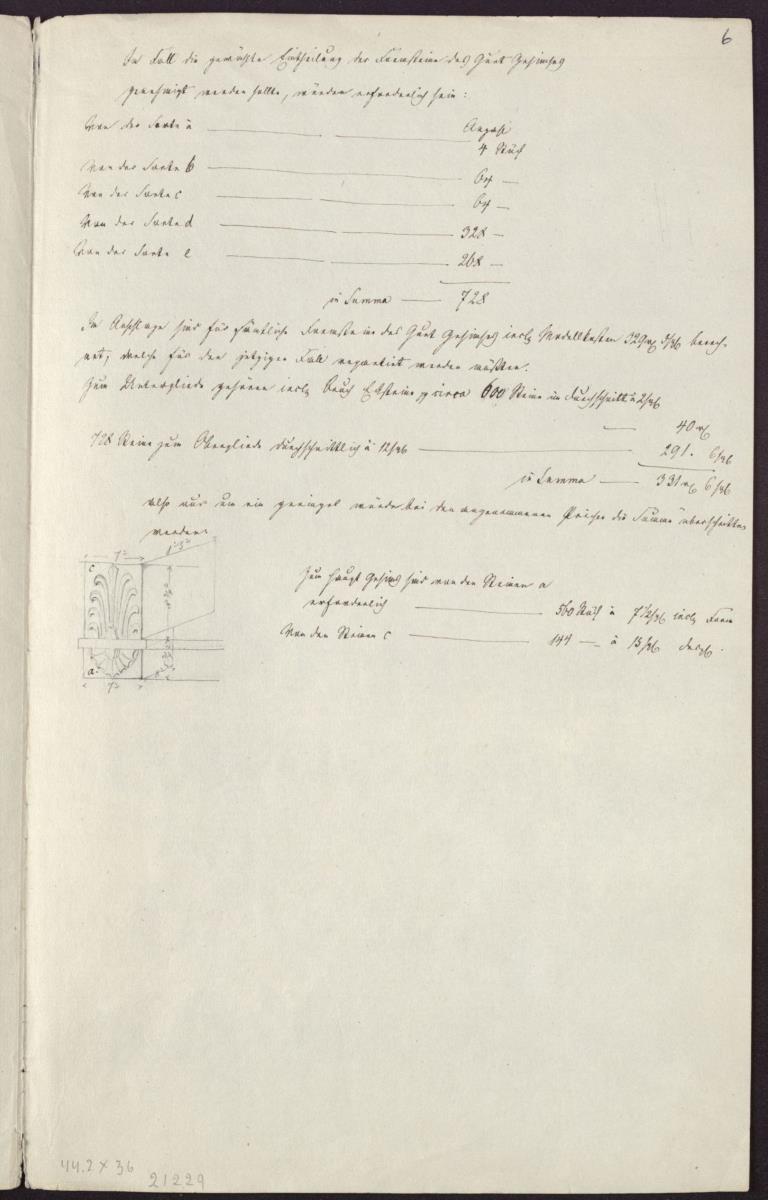 6
Im Fall die gewählte Eintheilung der Formsteine des Gurt Gesimses
genehmigt werden sollte, würden erforderlich sein:
Von der Sorte a 4 Stück
Von der Sorte b 64 —
Von der Sorte c 64 —
Von der Sorte d 328 —
Von der Sorte e 268 —
in Summa 728
Im Anschlage sind für sämtliche Formsteine des Gurt Gesimses incl. Modellkosten 329 berech-
net, welche für den jetzigen Fall repartirt werden müßten.
Zum Untergliede gehören incl. Bruch Ecksteine circa 600 Steine im Durchschnitt à 2
40
728 Steine zum Obergliede durchschnittlich à 12 291. 6
in Summa 331 6
also nur um ein geringes würde bei den angenommenen Preisen die Summe überschritten
werden.
c
a
Zum Haupt Gesims sind von den Steinen a
erforderlich 560 Stück à 7½ incl. Form
Von den Steinen c 144 — à 15
44.2 x 36
21229